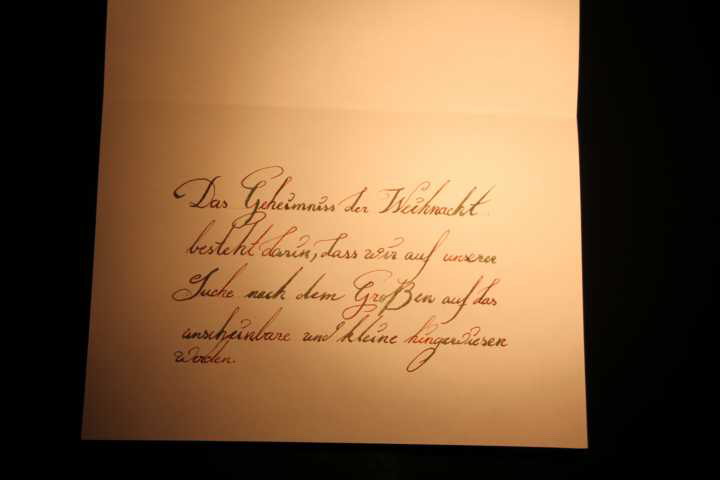 Das Geheimniss der Weihnacht
besteht darin, dass wir auf unserer
Suche nach dem Großen auf das
unscheinbare und kleine hingewiesen
werden.